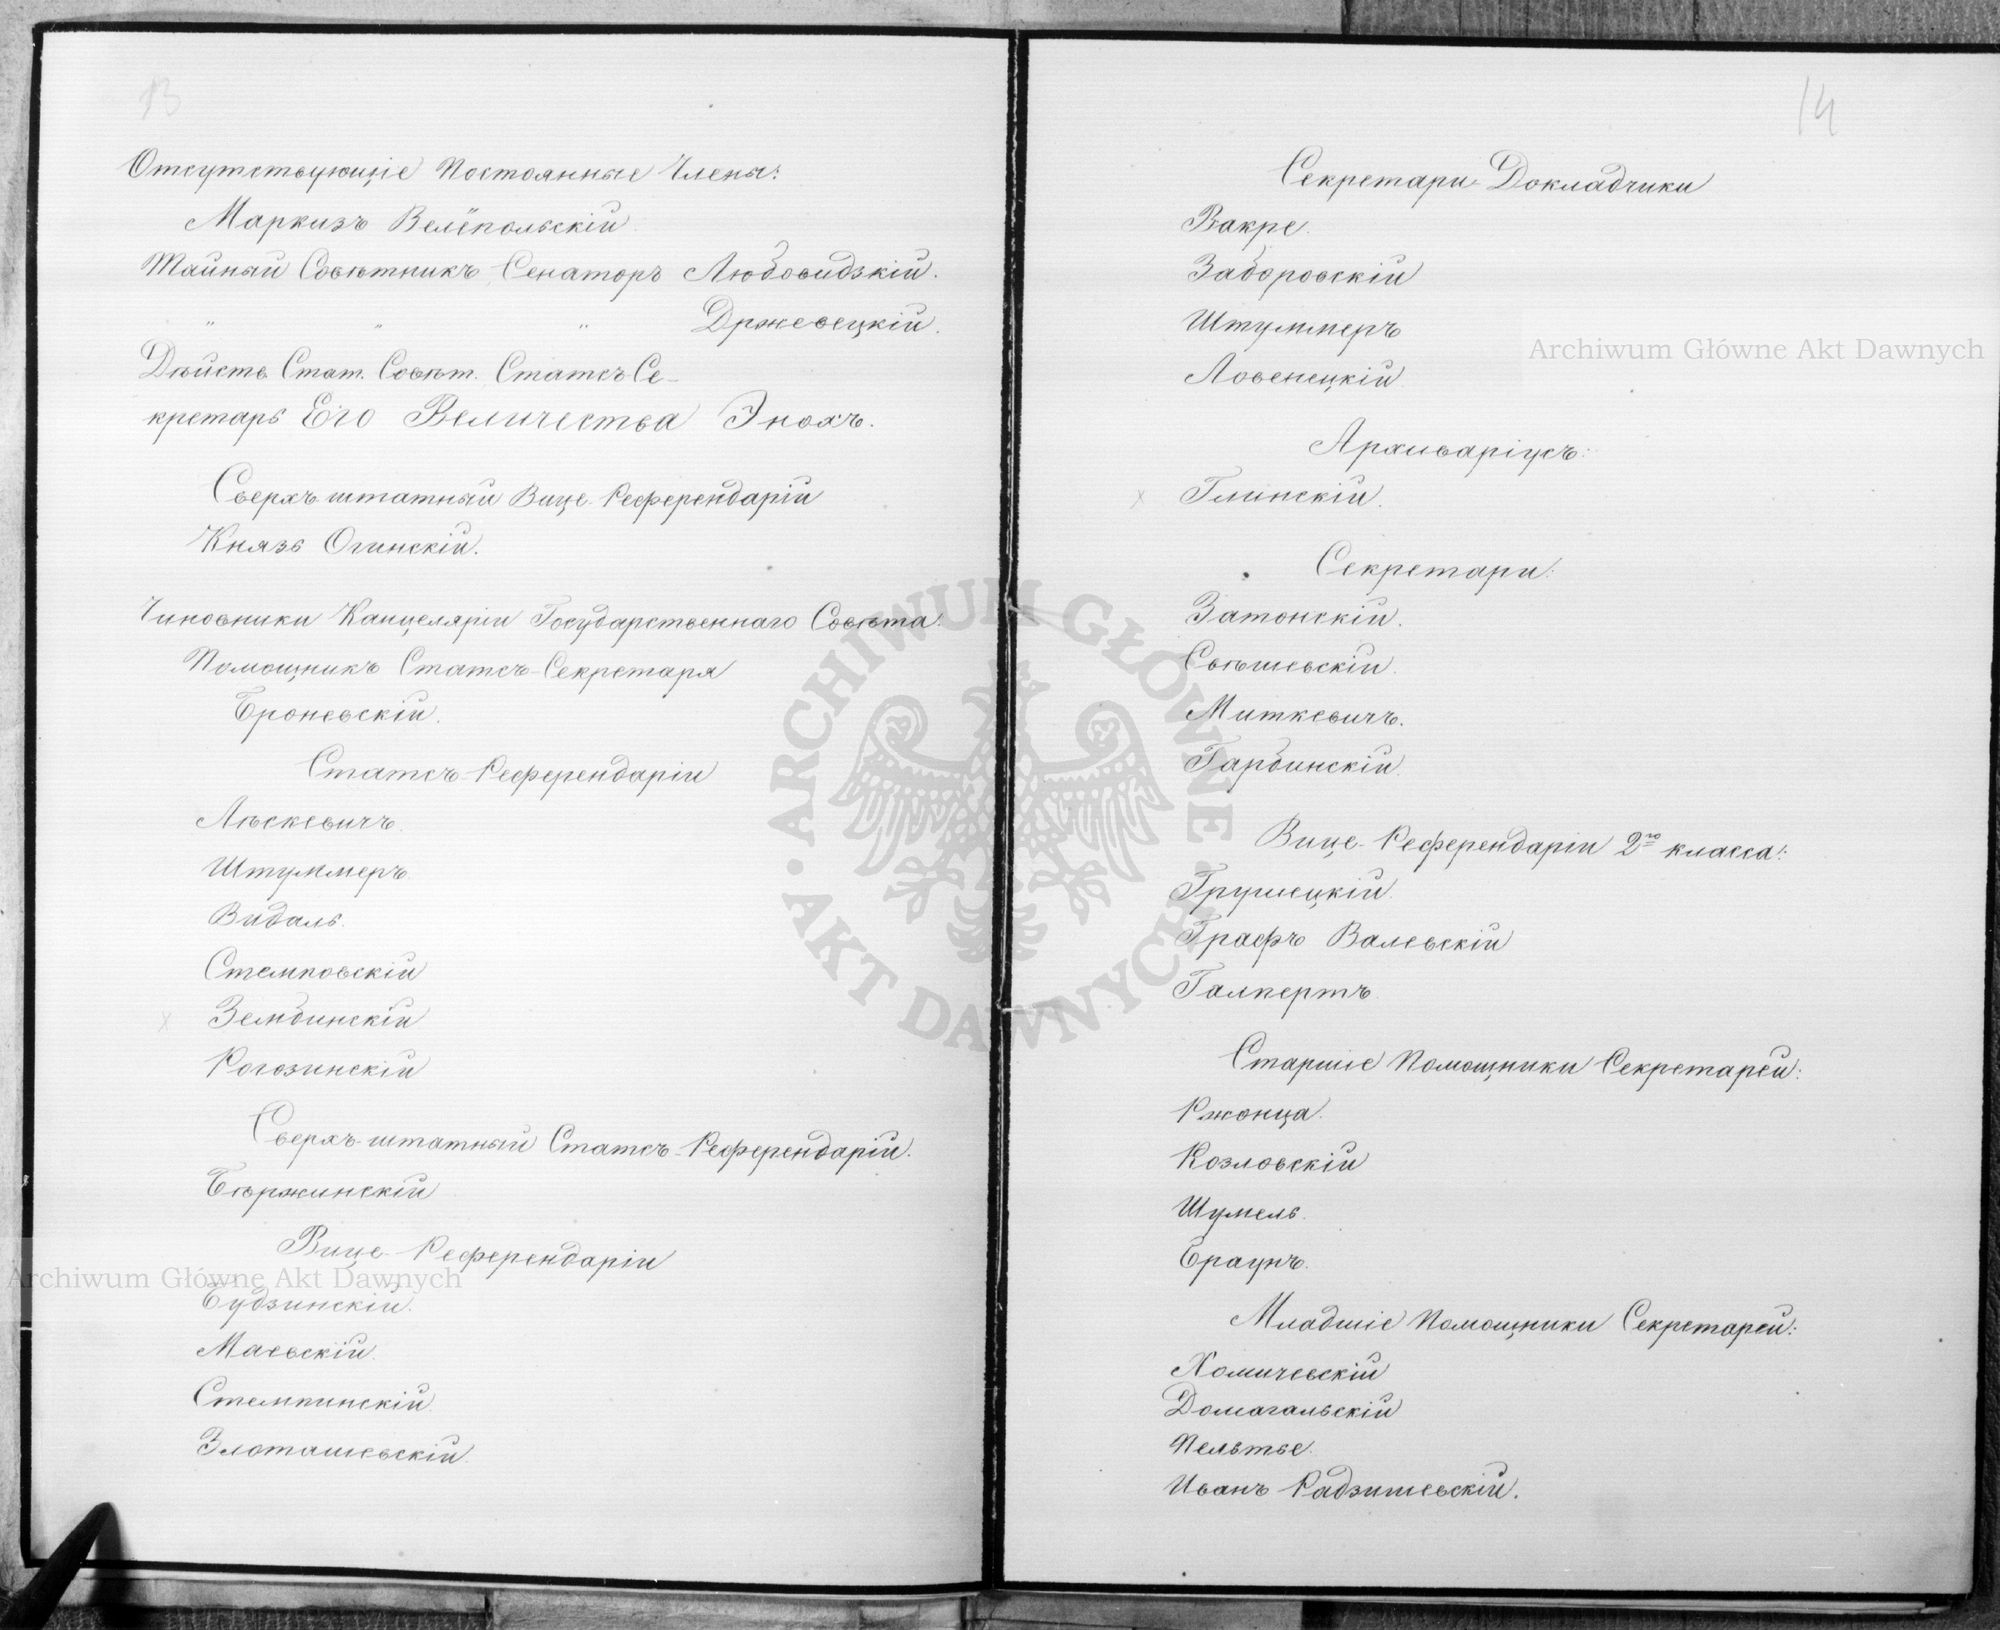 13
Отсутствующіе Постоянные Члены:
Маркизъ Велёпольскій.
Тайный Совѣтникъ Сенаторъ Любовидзкій.
" " " Држевецкій.
Дѣйств Стат. Совѣт. Статсъ Се-
кретарь Его Величества Энохъ.
Сверхъштатный Вице-Референдарій
Князь Огинскій.
Чиновники Канцеляріи Государственнаго Совѣта:
Помощникъ Статсъ-Секретаря
Броневскій.
Статсъ-Референдаріи
Лѣскевичъ.
Штуммеръ.
Видаль.
Стемповскій
Зембинскій
Рогозинскій
Сверхъ-штатный Статсъ-Референдарій.
Бѣржинскій
Вице-Референдаріи
Будзинскій.
Маевскій.
Стемпинскій.
Злоташевскій.
14
Секретари-Докладчики
Вакре.
Заборовскій
Штуммеръ
Ловенецкій
Архиваріусъ:
Глинскій.
Секретари:
Затонскій.
Свѣшевскій.
Миткевичъ.
Гарбинскій.
Вице-Референдаріи 2го класса:
Грушецкій.
Графъ Валевскій
Галпертъ.
Старшіе Помощники Секретарей:
Ржонца.
Козловскій
Шумель.
Браунъ.
Младшіе Помощники Секретарей:
Хомичевскій
Домагальскій
Пельтье.
Иванъ Радзишевскій.
Archiwum Główne Akt Dawnych
Archiwum Główne Akt Dawnych
ARCHIWUM GŁÓWNE AKT DAWNYCH